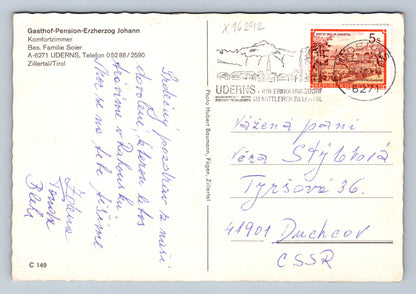 Gasthof-Pension-Erzherzog Johann
Komfortzimmer
Bes. Familie Soier
A-6271 UDERNS, Telefon 0 52 88 / 2590
Zillertal/Tirol
X16292
5 S
UDERNS - DER ERHOLUNGSORT
IM MITTLEREN ZILLERTAL
6271
Srdečný pozdrav z naší
dovolené, kterou letos
trávíme v Rakousku.
Moc se na tebe těšíme
Zdena
Tonda
Photo Hubert Baumann, Fügen, Zillertal
Vážená paní
Věra Stýblová
Tyršova 36.
41901 Duchcov
ČSSR
C 149